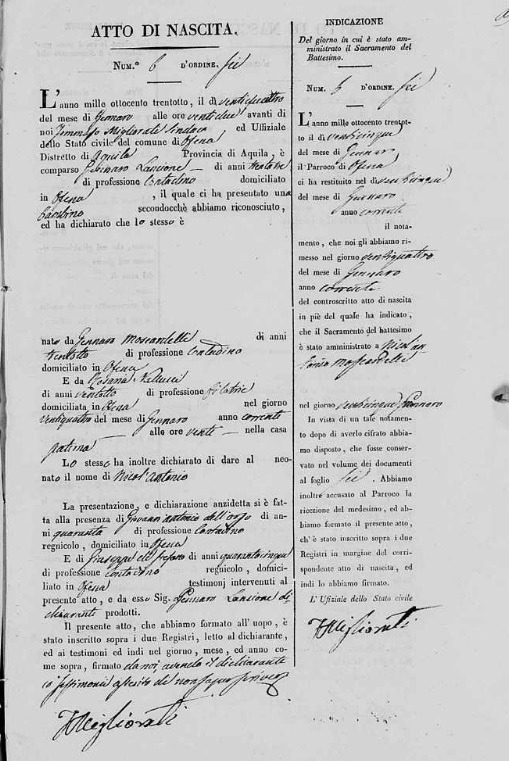 ATTO DI NASCITA.
Num.º 6 d'ordine. sei
L'anno mille ottocento trentotto, il dì ventiquattro
del mese di Gennaro alle ore ventidue avanti di
noi Tommaso Migliorati Sindaco ed Uffiziale
dello Stato civile del comune di Ofena
Distretto di Aquila Provincia di Aquila, è
comparso Gennaro Lancione di anni
di professione Contadino domiciliato
in Ofena , il quale ci ha presentato una
secondocchè abbiamo riconosciuto,
ed ha dichiarato che lo stesso è
nato da Gennaro Moscardelli di anni
ventotto di professione Contadino
domiciliato in Ofena
E da Rosana di anni ventotto di professione filatrice
domiciliata in Ofena nel giorno
ventiquattro del mese di Gennaro anno corrente
alle ore venti nella casa
paterna
Lo stesso ha inoltre dichiarato di dare al neo-
nato il nome di Nicol'Antonio
La presentazione, e dichiarazione anzidetta si è fat-
ta alla presenza di Giovann'Antonio dell'Orso di an-
ni quaranta di professione Contadino
regnicolo, domiciliato in Ofena
E di Giuseppe di Stefano di anni quarantacinque
di professione Contadino regnicolo, domici-
liato in Ofena testimonj intervenuti al
presente atto, e da esso Sig. Gennaro Lancione di-
chiarante prodotti.
Il presente atto, che abbiamo formato all'uopo, è
stato inscritto sopra i due Registri, letto al dichiarante,
ed ai testimoni ed indi nel giorno, mese, ed anno co-
me sopra, firmato da noi, avendo il dichiarante
e testimonii asserito di non saper scrivere
TMigliorati
INDICAZIONE
Del giorno in cui è stato am-
ministrato il Sacramento del
Battesimo.
Num. 6 d'ordine. sei
L'anno mille ottocento trentot-
to il dì venticinque
del mese di Gennaro
il Parroco di Ofena
ci ha restituito nel dì venticinque
del mese di Gennaro
anno corrente
il nota-
mento, che noi gli abbiamo ri-
messo nel giorno ventiquattro
del mese di Gennaro
anno corrente
del controscritto atto di nascita
in piè del quale ha indicato,
che il Sacramento del battesimo
è stato amministrato a Nicol'An
tonio Moscardelli
nel giorno venticinque Gennaro
In vista di un tale notamento
dopo di averlo cifrato abbia-
mo disposto, che fosse conser-
vato nel volume dei documenti
al foglio sei . Abbiamo
inoltre accusato al Parroco la
ricezione del medesimo, ed ab-
biamo formato il presente atto,
ch'è stato inscritto sopra i due
Registri in margine del corri-
spondente atto di nascita, ed
indi lo abbiamo firmato.
L'Ufiziale dello Stato civile
TMigliorati